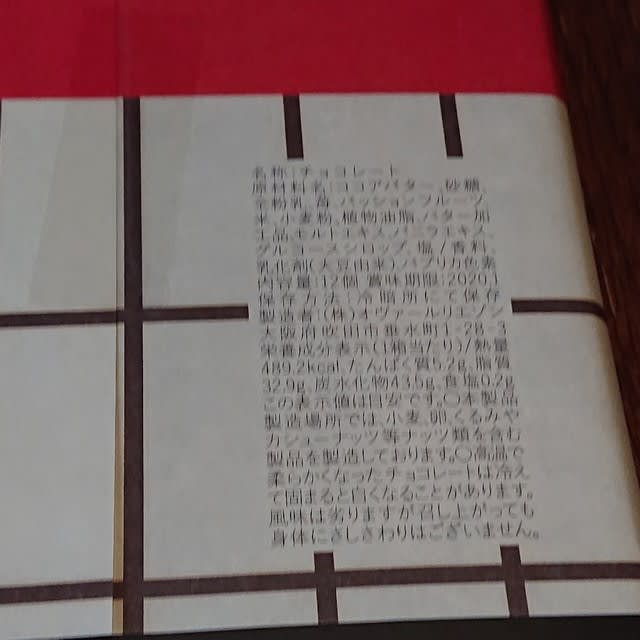 名称:チョコレート
原材料名:ココアバター、砂糖、
全粉乳、苺、パッションフルーツ、
米、小麦粉、植物油脂、バター加
工品、モルトエキス、
グルコースシロップ、塩/香料、
乳化剤(大豆由来)、パプリカ色素
内容量:12個 賞味期限:2020.1
保存方法:冷暗所にて保存
製造者:(株)オヴァールリエゾン
大阪府吹田市垂水町1-28-3
栄養成分表示(1箱当たり)/熱量
489.2kcal たんぱく質 脂質
32.9g 炭水化物43.5g 食塩0.2g
この表示値は目安です。〇本製品
製造場所では、小麦、卵、くるみや
カシューナッツ等ナッツ類を含む
製品を製造しております。〇高温で
柔らかくなったチョコレートは冷え
て固まると白くなることがあります。
風味は劣りますが召し上がっても
身体にさしさわりはございません。